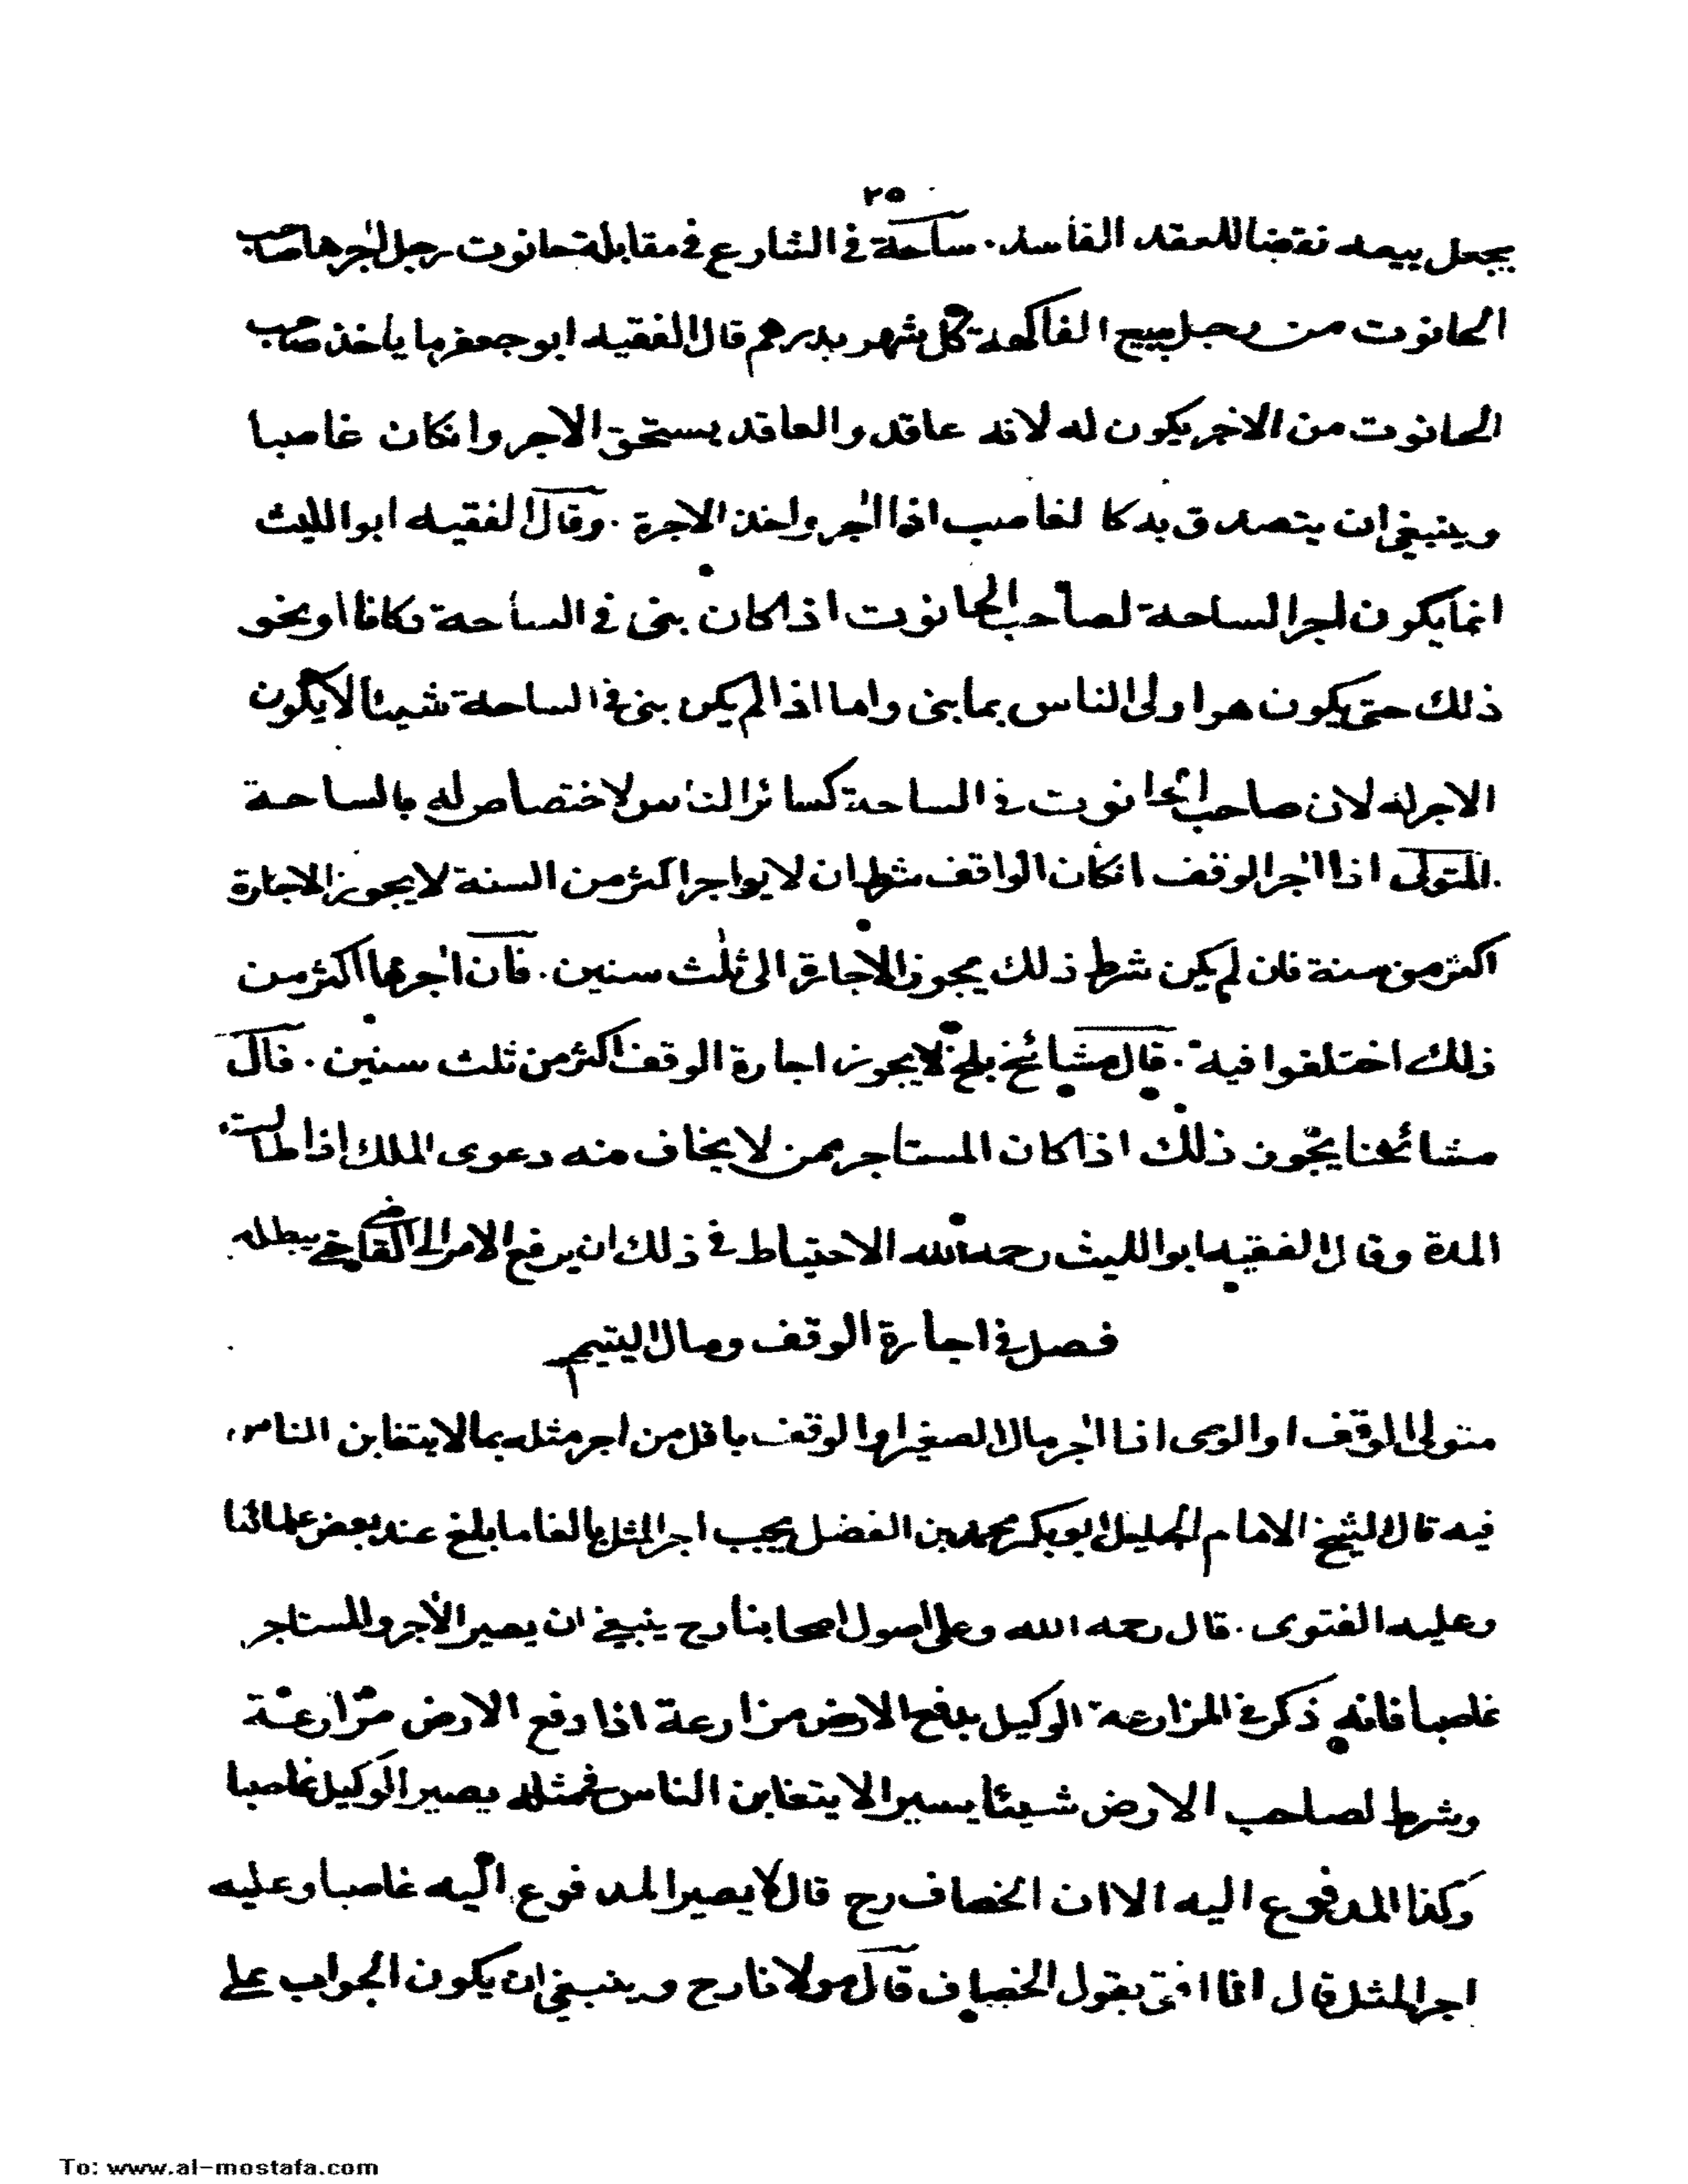 ٢٥
يجعل بيعه نقضا للعقد الفاسد. ساحة في الشارع في مقابلة حانوت رجل اٰجرها صاحب
الحانوت من رجل يبيع الفاكهة كل شهر بدرهم قال الفقيه ابو جعفر ما ياخذ صاحب
الحانوت من الاخر يكون له لانه عاقد والعاقد يستحق الاجر وانكان غاصبا
وينبغي ان يتصدق به كالغاصب اذا اٰجر واخذ الاجرة. وقال الفقيه ابو الليث
انما يكون اجر الساحة لصاحب الحانوت اذا كان بنى في الساحة دكانا او نحو
ذلك حتى يكون هو اولى الناس بما بنى واما اذا لم يكن بنى في الساحة شيئا لا يكون
الاجر له لان صاحب الحانوت في الساحة كسائر الناس لا اختصاص له بالساحة
المتولى اذا اٰجر الوقف انكان الواقف شرط ان لا يواجر اكثر من السنة لا يجوز الاجارة
اكثر من سنة فان لم يكن شرط ذلك يجوز الاجارة الى ثلٰث سنين. فان اٰجرها اكثر من
ذلك اختلفوا فيه. قال مشائخ بلخ لا يجوز اجارة الوقف اكثر من ثلث سنين. قال
مشائخنا يجوز ذلك اذا كان المستاجر ممن لا يخاف منه دعوى الملك اذا طالت
المدة وقال الفقيه ابو الليث رحمه الله الاحتياط في ذلك ان يرفع الامر الى القاضي يبطله
فصل في اجارة الوقف ومال اليتيم
متولى الوقف او الوصى اذا اٰجر مال الصغير او الوقف باقل من اجر مثله بما لا يتغابن الناس
فيه قال الشيخ الامام الجليل ابو بكر محمد بن الفضل يجب اجر المثل بالغا ما بلغ عند بعض علمائنا
وعليه الفتوى. قال رحمه الله وعلى اصول اصحابنا رح ينبغي ان يصير الاٰجر والمستاجر
غاصبا فانه ذكر في المزارعة الوكيل بدفع الارض مزارعة اذا دفع الارض مزارعة
وشرط لصاحب الارض شيئا يسيرا لا يتغابن الناس في مثله يصير الوكيل غاصبا
وكذا المدفوع اليه الا ان الخصاف رح قال لا يصير المدفوع اليه غاصبا وعليه
اجر المثل قال انا افتى بقول الخصاف قال مولانا رح وينبغي ان يكون الجواب على
To: www.al-mostafa.com